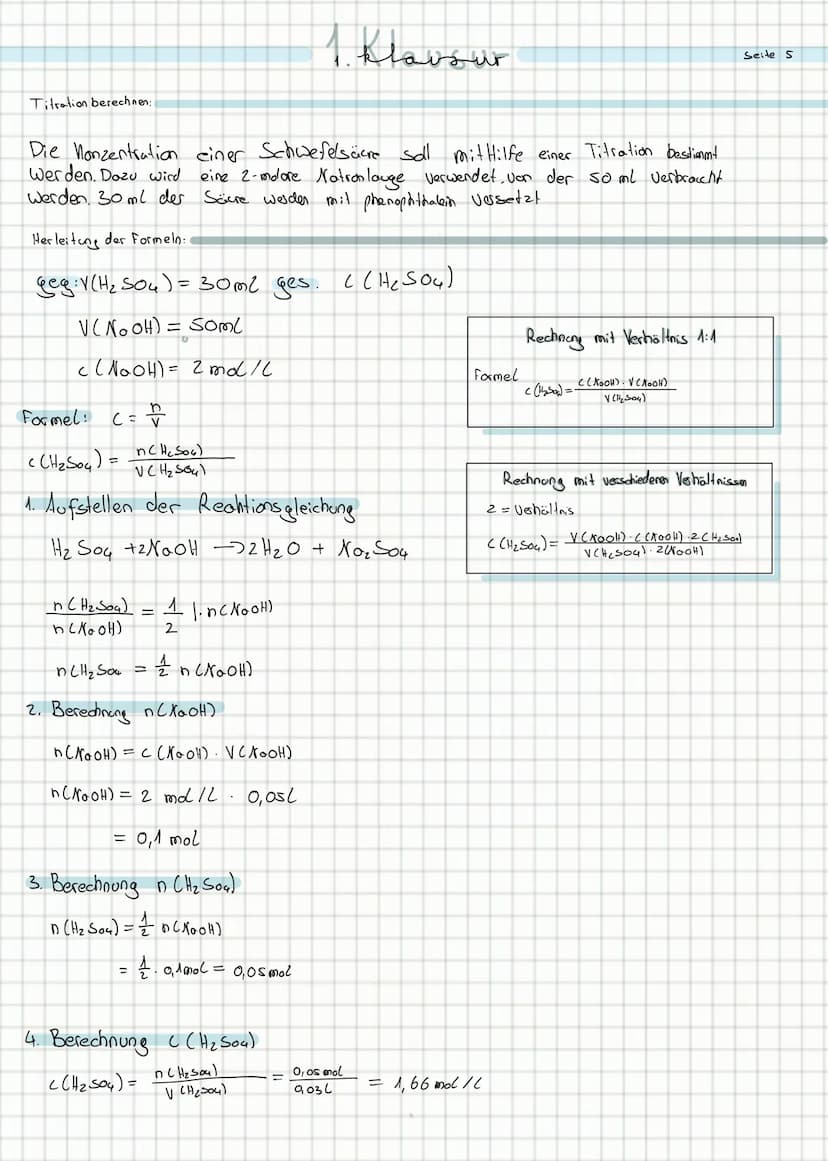 1. Klausur
Seite 5
Titration berechnen:
Die Konzentration einer Schwefelsäure soll mithilfe einer Titration bestimmt
werden. Dazu wird eine 2-molare Natronlauge verwendet, von der 50 ml verbraucht
werden. 30 ml der Säure werden mit phenophthalein versetzt
Herleitung der Formeln:
geg: V(H₂SO₄) = 30ml ges. c(H₂SO₄)
V(NaOH) = 50ml
c(NaOH) = 2 mol/L
Formel: c = n/V
c(H₂SO₄) = n(H₂SO₄)/V(H₂SO₄)
1. Aufstellen der Reaktionsgleichung
H₂SO₄ + 2NaOH → 2H₂O + Na₂SO₄
n(H₂SO₄)/n(NaOH) = 1/2 |·n(NaOH)
n(H₂SO₄ = 1/2 n(NaOH)
2. Berechnung n(NaOH)
n(NaOH) = c(NaOH) · V(NaOH)
n(NaOH) = 2 mol/L · 0,05L
= 0,1 mol
3. Berechnung n(H₂SO₄)
n(H₂SO₄) = 1/2 n(NaOH)
= 1/2 · 0,1mol = 0,05mol
4. Berechnung c(H₂SO₄)
c(H₂SO₄) = n(H₂SO₄)/V(H₂SO₄) = 0,05 mol/0,03L = 1,66 mol/L
Rechnung mit Verhältnis 1:1
Formel
c(H₂SO₄) = c(NaOH) · V(NaOH)/V(H₂SO₄)
Rechnung mit verschiedenen Verhältnissen
z = Verhältnis
c(H₂SO₄) = V(NaOH) · c(NaOH) · z(H₂SO₄)/V(H₂SO₄) · z(NaOH)